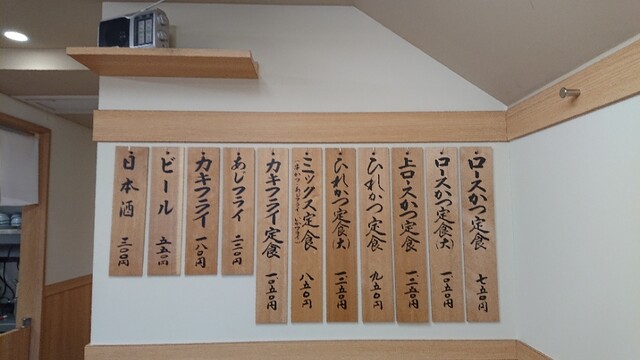 ロースかつ定食 七五〇円
ロースかつ定食(大) 一、〇五〇円
上ロースかつ定食 一、二五〇円
ひれかつ定食 九五〇円
ひれかつ定食(大) 一、二五〇円
ミックス定食 八五〇円
カキフライ定食 一、〇五〇円
あじフライ 二二〇円
カキフライ 一八〇円
ビール 五五〇円
日本酒 三〇〇円